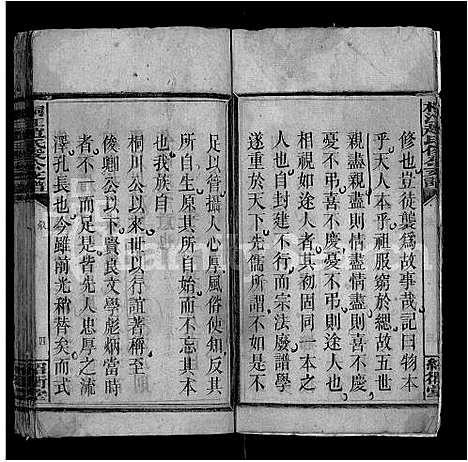 修也豈徒襲爲故事哉記曰物本
乎天人本乎祖服窮於緦故五世
親盡親盡則情盡情盡則喜不慶
憂不弔喜不慶憂不弔則途人也
相視如途人者其初固同一本也
然自封建不行而宗法廢譜學
遂重於天下先儒所謂不如是不
足以管攝人心厚風俗使知反其
所自生原其所自始而不忘其本
也我族自
桐川公以來世以行誼著稱至
俊卿公以下賢良文學彪炳當時
不一而足是皆先人忠厚之流
澤孔長也今雖前光稍替矣而式
四